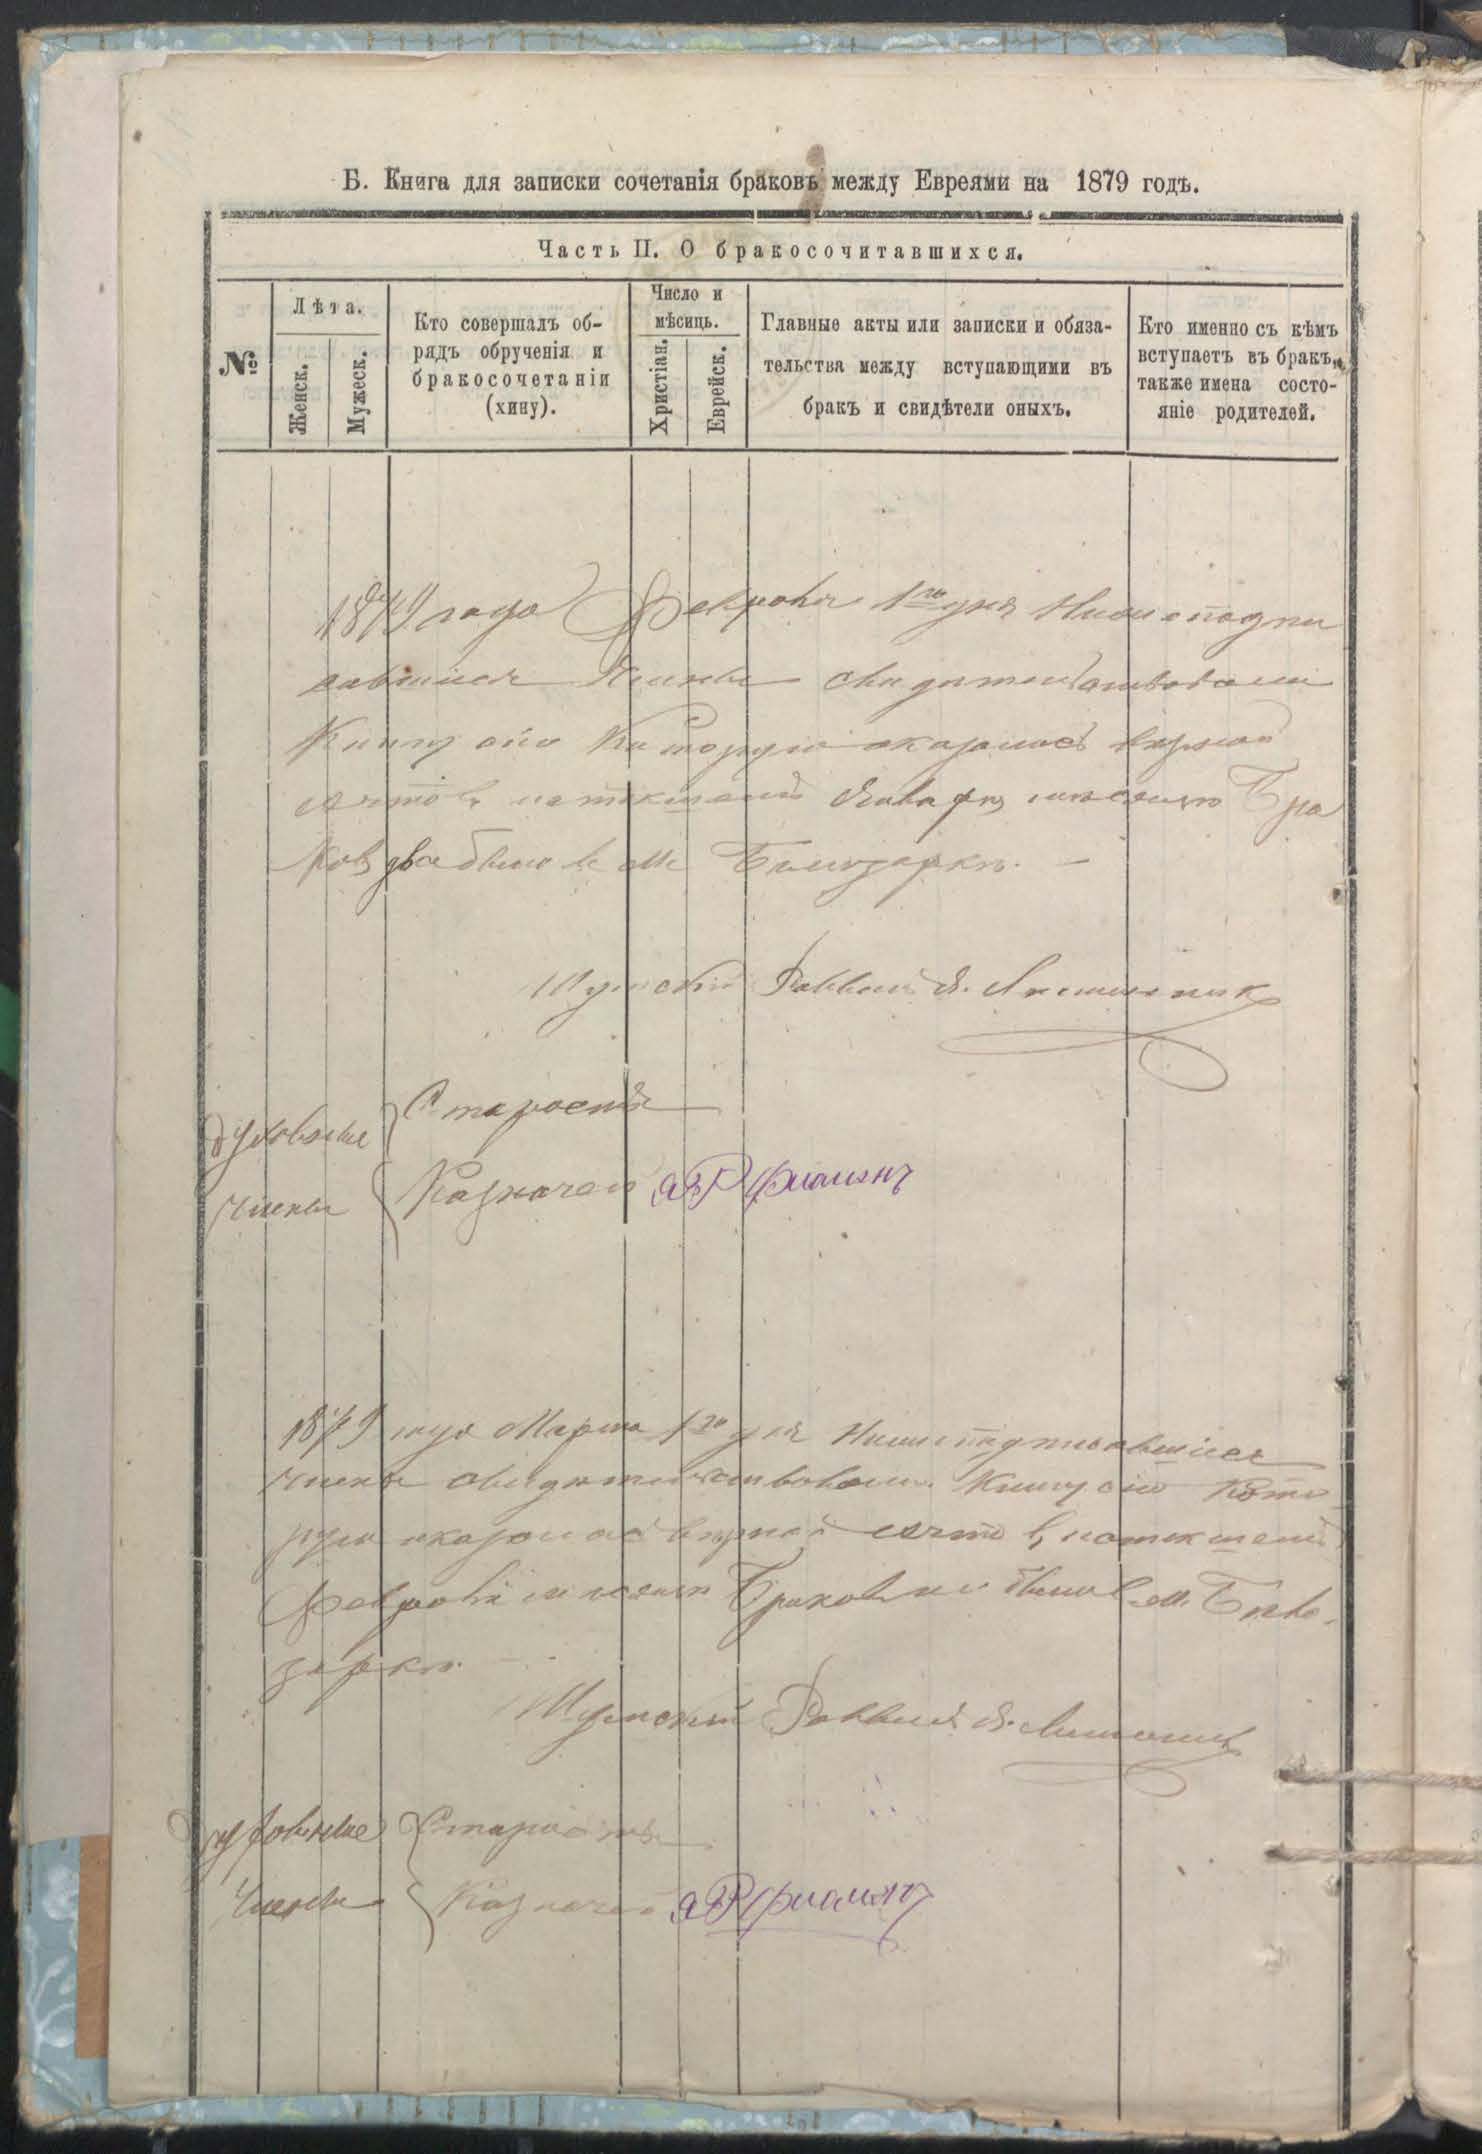 Б. Книга для записки сочетанія браковъ между Евреями на 1879 годъ.
Часть II. О бракосочитавшихся.
№
Лѣта.
Женск.
Мужеск.
Кто совершалъ об-
рядъ обрученія и
бракосочетаніи
(хину).
Число и
мѣсяць.
Христіан.
Еврейск.
Главные акты или записки и обяза-
тельства между вступающими въ
бракъ и свидѣтели оныхъ.
Кто именно съ кѣмъ
вступаетъ въ бракъ,
также имена состо-
яніе родителей.
1879 года Февраля 1го дня Нижеподпи
савшіися Члены свидѣтельствовали
Книгу сію Которую оказалось вѣрной
счтов, истекшей Январѣ мѣсяцѣ Бра
ковъ два было в м Белозоркѣ. —
Шумскій Раввинъ Я.
Духовные Члены
Староста
Казначей
1879 года Марта 1го дня Нижеподписавшіися
Члены свидѣтельствовали Книгу сію Кото
рую оказалось вѣрной счтов, истекшей
Февралѣ мѣсяцѣ Браков не было в м. Бѣло-
зоркѣ.
Шумскій Раввинъ Я.
Духовные Члены
Староста
Казначей